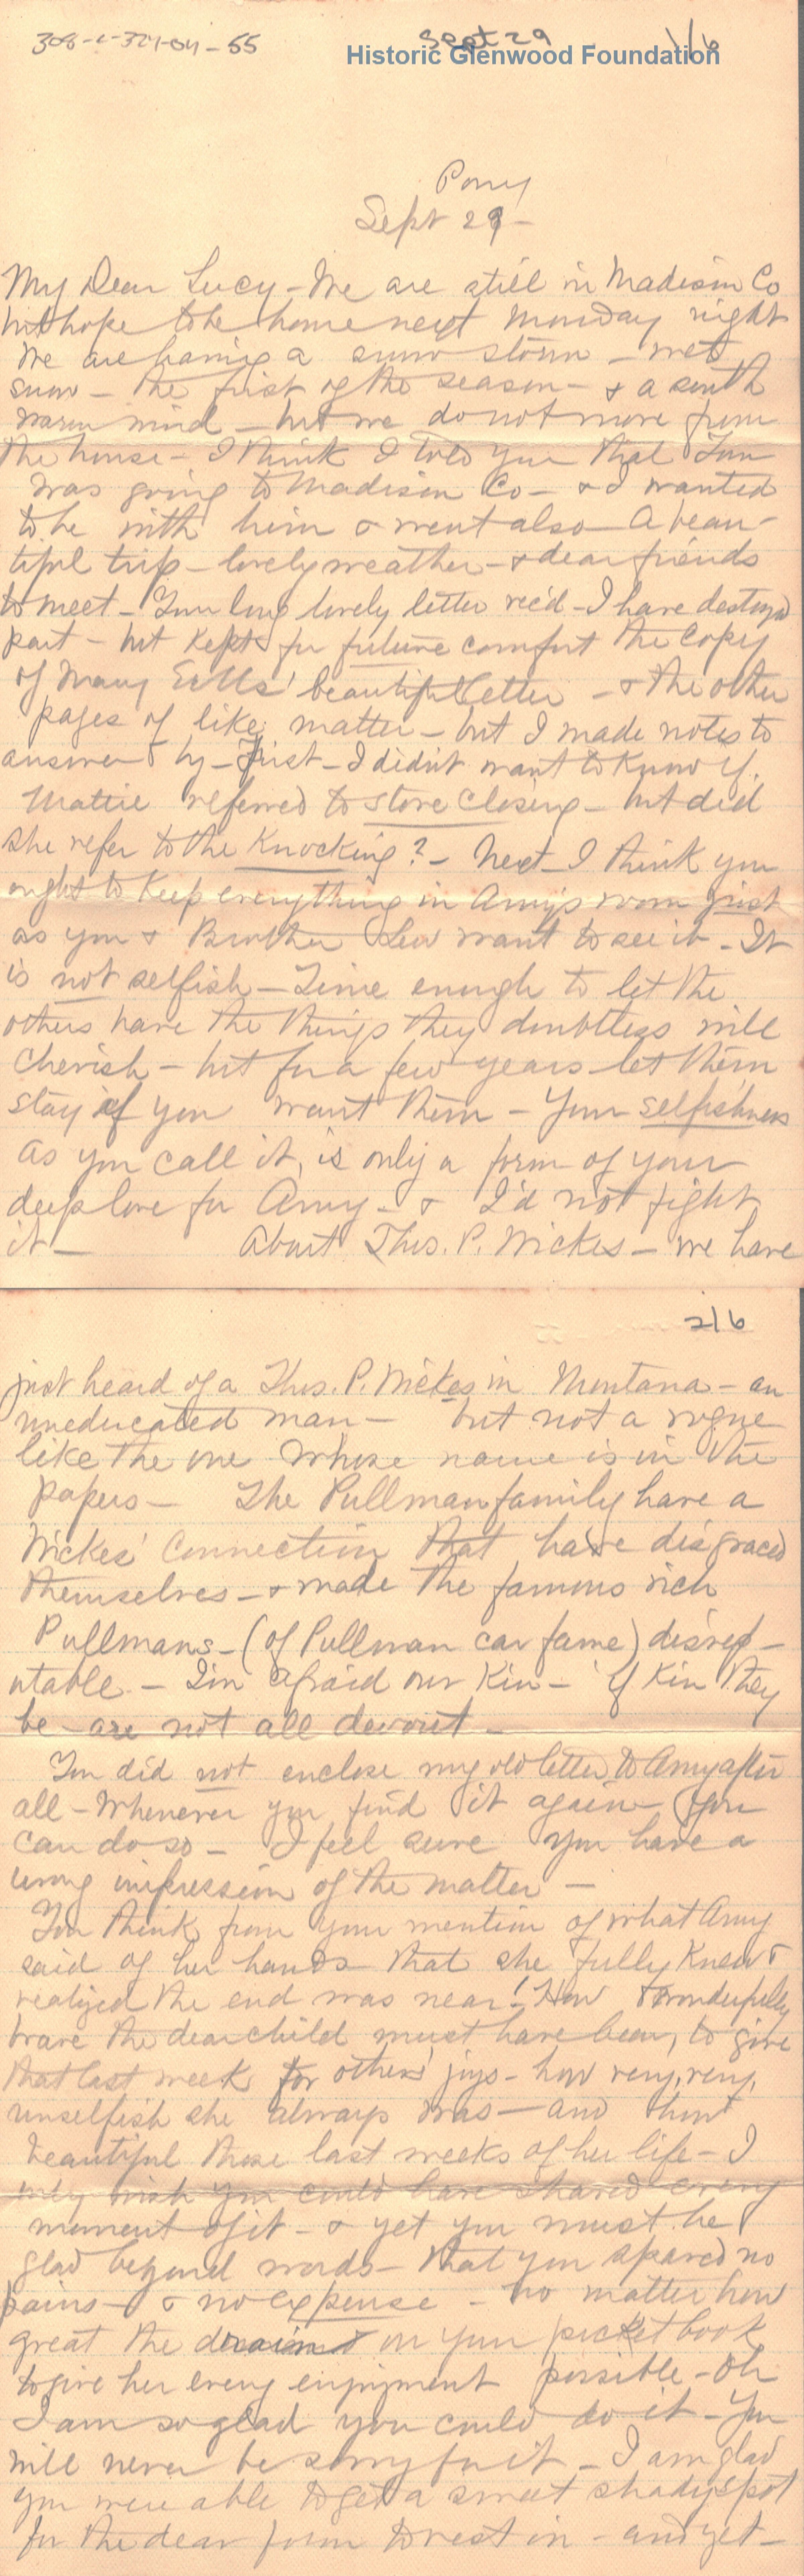 308-c-321-04-55 Sept 29 1/6
Historic Glenwood Foundation
Pony
Sept 29-
My Dear Lucy - We are still in Madison Co
but hope to be home next Monday night
We are having a snow storm - wet
snow - the first of the season - & a south
warm wind - but we do not move from
the house - I think I told you that
was going to Madison Co - & I wanted
to be with him & went also - A beau-
tiful trip - lovely weather - & dear friends
to meet - Your long lovely letter rec'd - I have destroyed
part - but kept for future comfort the copy
of Mary Eells' beautiful letter - & the other
pages of like matter - but I made notes to
answer by - First - I didn't want to know if
Mattie referred to store closing - but did
she refer to the Knocking? - Next - I think you
ought to keep everything in Amy's room just
as you & Brother Lew want to see it - It
is not selfish - Time enough to let the
others have the things they doubtless will
cherish - but for a few years let them
stay if you want them - Your selfishness
as you call it, is only a form of your
deep love for Amy - & I'd not fight
it - About Thos. P. Wickes - we have
2/6
just heard of a Thos. P. Wickes in Montana - an
uneducated man - but not a rogue
like the one whose name is in the
papers - The Pullman family have a
Wickes' connection that have disgraced
themselves - & made the famous rich
Pullmans - (of Pullman car fame) disrep-
utable - I'm afraid our Kin - if Kin they
be - are not all devout -
You did not enclose my old letter to Amy after
all - Whenever you find it again you
can do so - I feel sure you have a
wrong impression of the matter -
You think from your mention of what Amy
said of her hands that she fully knew &
realized the end was near! How wonderfully
brave the dear child must have been, to give
that last week for others' joys - how very, very,
unselfish she always was - and how
beautiful those last weeks of her life - I
only wish you could have shared every
moment of it - & yet you must be
glad beyond words - that you spared no
pains - & no expense - no matter how
great the drain on your pocket book
to give her every enjoyment possible - Oh
I am so glad you could do it - You
will never be sorry for it - I am glad
you were able to get a sweet shady spot
for the dear form to rest in - and yet -